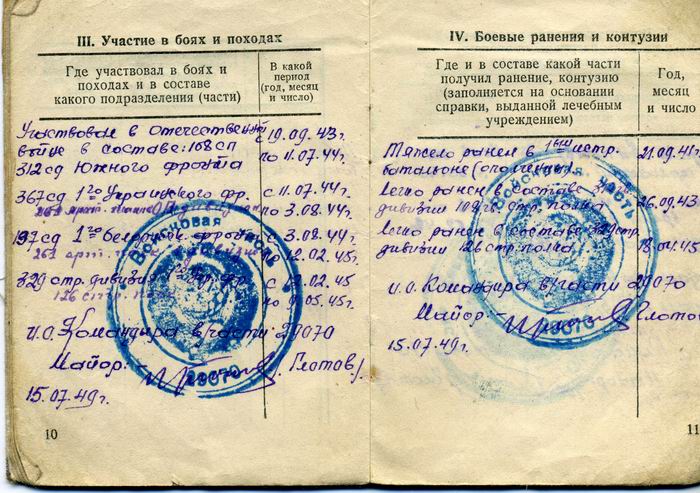 III. Участие в боях и походах
Где участвовал в боях и
походах и в составе
какого подразделения (части)
В какой
период
(год, месяц
и число)
Участвовал в Отечествен
войне в составе: 108 сп
с 19.09.43г.
312 сд Южного фронта
по 11.07.44г.
367 сд 1го Украинского фр.
с 11.07.44г.
по 3.08.44г.
197 сд 1го Белорус. фронта
с 3.08.44г.
262 арт.
по 12.02.45г.
329 стр. дивизии
с 12.02.45
126 стр. п.
по 9.05.45г.
И.О. Командира в/части 29070
Майор - Глотов
Войсковая часть
29070
15.07.49г.
10
IV. Боевые ранения и контузии
Где и в составе какой части
получил ранение, контузию
(заполняется на основании
справки, выданной лечебным
учреждением)
Год,
месяц
и число
Тяжело ранен в 1ом истр.
21.09.41г.
батальоне (ополчения).
Легко ранен в составе 312
дивизии 108 стр. полка
26.09.43
Легко ранен в составе 329 стр.
дивизии 126 стр. полка
18.04.45
И.О. Командира в/части 29070
Майор - Глотов
Войсковая часть
29070
15.07.49г.
11